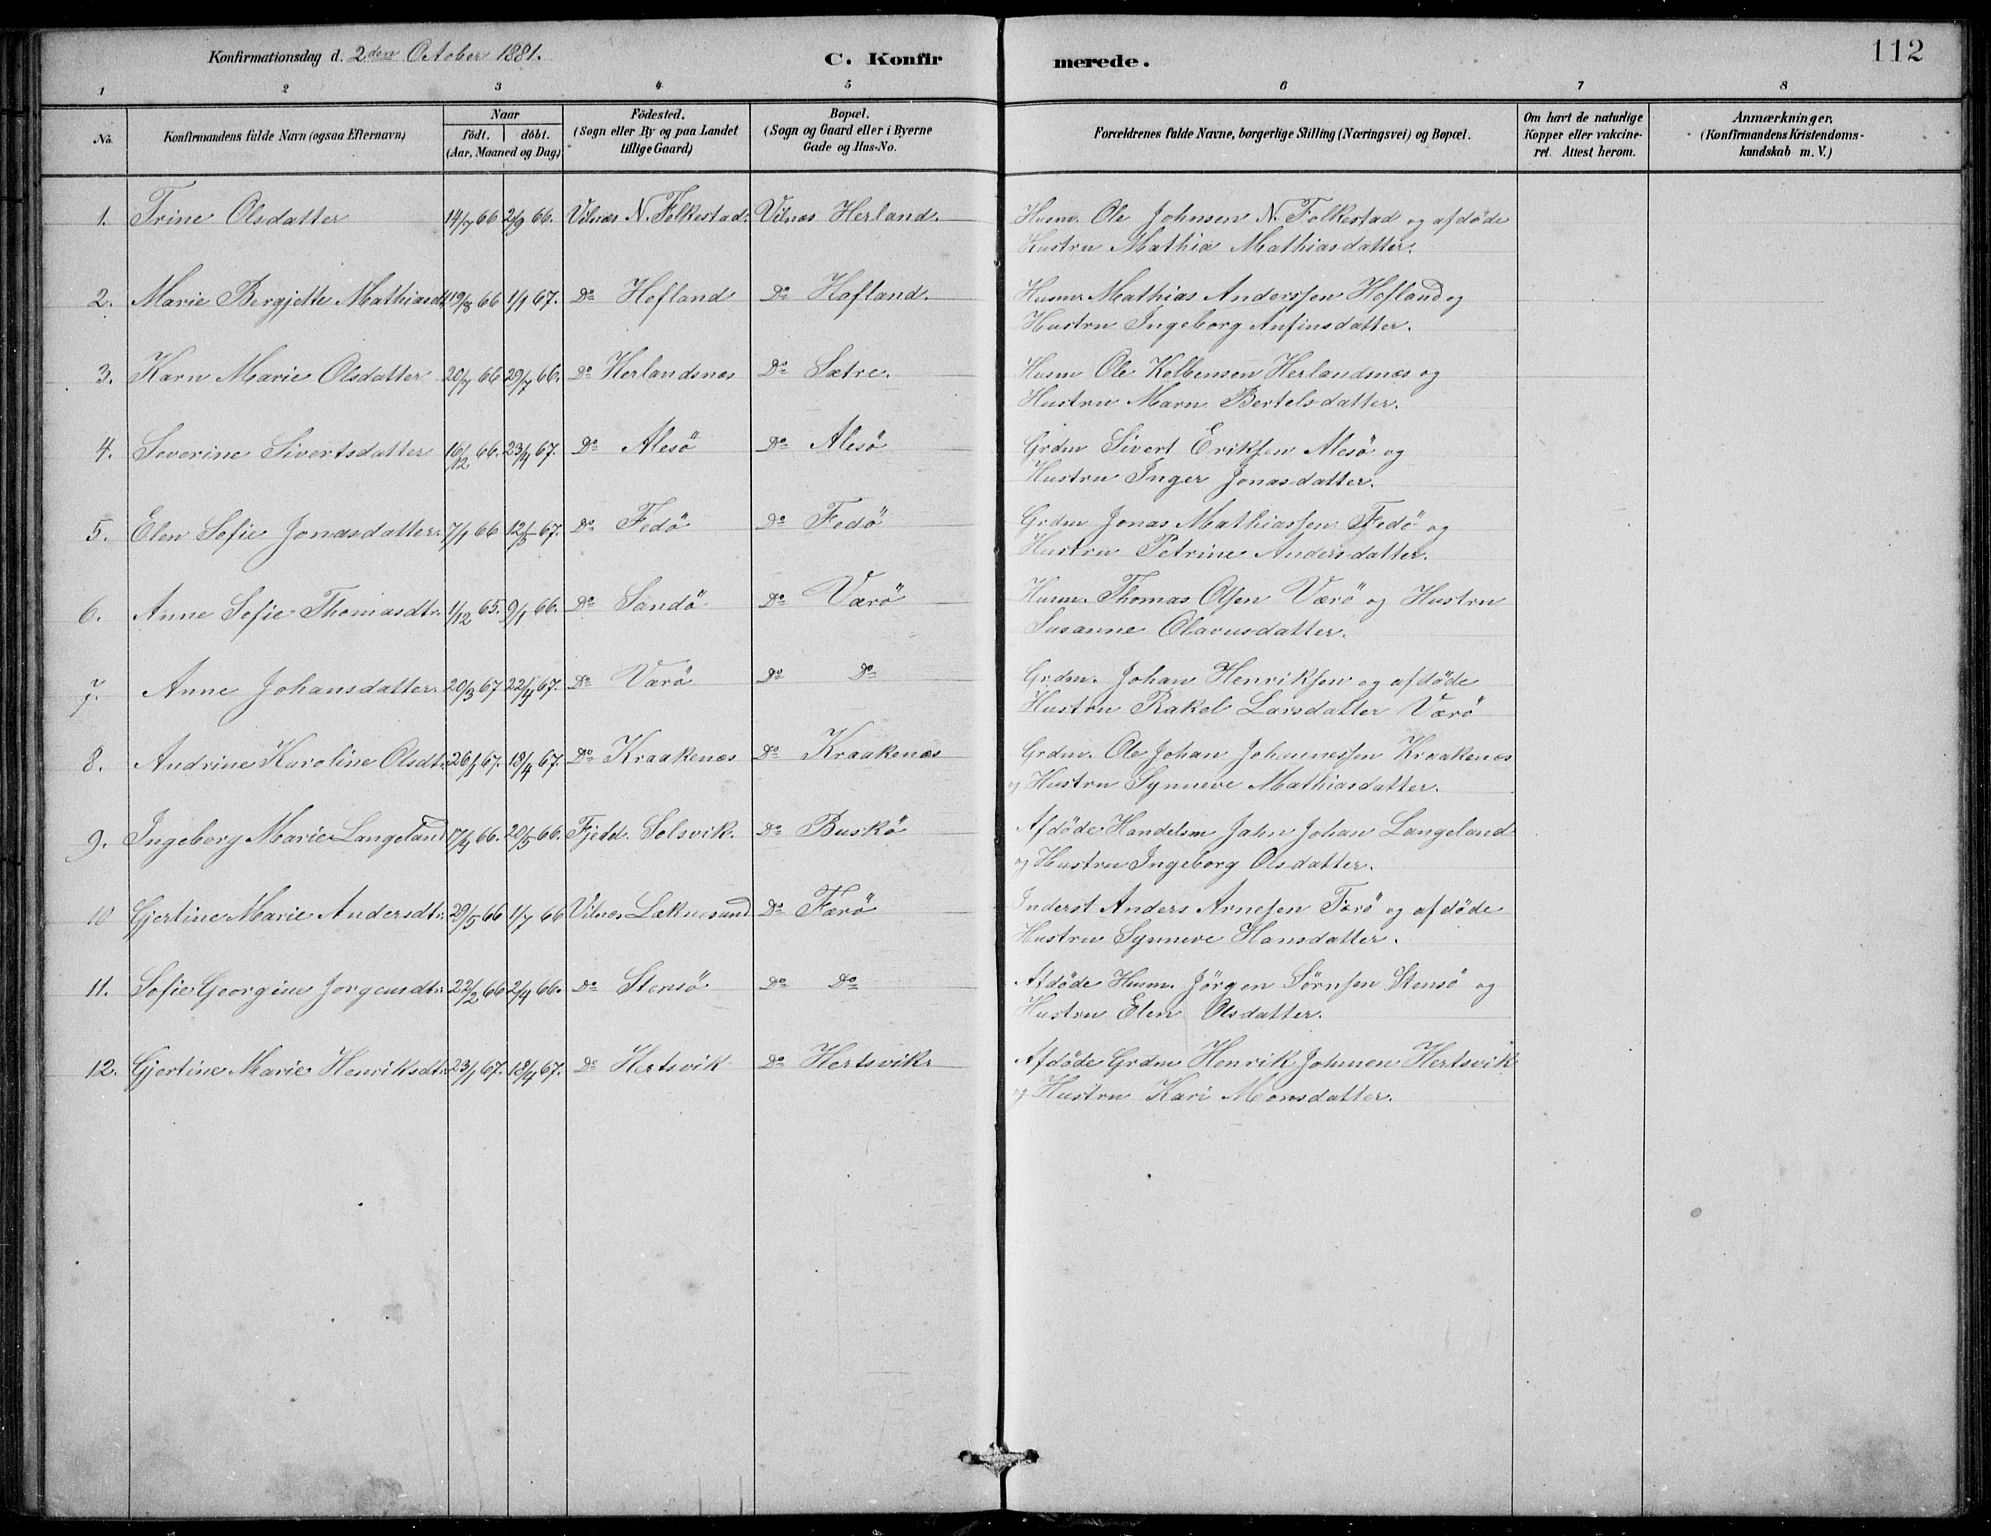 Konfirmationsdag d. 2den October 1881.
C. Konfir
merede.
112
1 2 3 4 5 6 7 8
No.
Konfirmandens fulde Navn (ogsaa Efternavn)
Naar
født. døbt.
(Aar, Maaned og Dag.)
Födested.
(Sogn eller By og paa Landet
tillige Gaard)
Bopæl.
(Sogn og Gaard eller i Byerne
Gade og Hus-No.
Forældrenes fulde Navne, borgerlige Stilling (Næringsvei) og Bopæl.
Om havt de naturlige
Kopper eller vakcine-
ret. Attest herom.
Anmærkninger.
(Konfirmandens Kristendoms-
kundskab m.V.)
1. Trine Olsdatter 14/7 66 2/9 66. Vilnæs N. Folkestad. Vilnæs Herland. Husm. Ole Johnsen N. Folkestad og afdöde
Hustru Mathia Mathiasdatter.
2. Marie Bergjette Mathiasdt. 19/8 66 1/1 67. Do Hofland Do Hafland. Husm. Mathias Anderssen Hofland og
Hustru Ingeborg Anfinsdatter.
3. Karn Marie Olsdatter 20/7 66 29/7 66. Do Herlandsnæs Do Sætre. Husm Ole Kolbensen Herlandsnæs og
Hustru Marn Bertelsdatter.
4. Severine Sivertsdatter 16/12 66. 23/4 67. Do Alesö Do Alesö Grdm Sivert Eriksen Alesö og
Hustru Inger Jonasdatter.
5. Elen Sofie Jonasdatter. 7/1 66 12/5 67. Do Fedö Do Fedö Grdm Jonas Mathiassen Fedö og
Hustru Petrine Andersdatter.
6. Anne Sofie Thomasdtr. 1/12 65. 9/1 66. Do Sandö Do Værö Husm. Thomas Olsen Værö og Hustru
Susanne Olavusdatter.
7. Anne Johansdatter. 20/3 67 22/4 67. Do Værö Do Do Grdm. Johan Henriksen og afdöde
Hustru Rakel Larsdatter Værö
8. Andrine Karoline Olsdtr. 26/1 67. 18/4 67. Do Kraakenæs Do Kraakenæs Grdm. Ole Johan Johannessen Kraakenæs
og Hustru Synneve Mathiasdatter.
9. Ingeborg Marie Langeland 17/4 66. 20/5 66. Fjedd. Solsvik. Do Buskö Afdöde Handelsm Jahn Johan Langeland
og Hustru Ingeborg Olsdatter.
10 Gjertine Marie Andersdtr. 29/5 66 1/7 66 Vilnæs Læknesund Do Færö Inderst Anders Arnesen Færö og afdöde
Hustru Synneve Hansdatter.
11. Sofie Georgine Jorgensdtr. 22/2 66 2/4 66. Do Stensö Do Do Afdöde Husm. Jörgen Sörnsen Stensö og
Hustru Elen Olsdatter.
12. Gjertine Marie Henriksdtr. 23/1 67. 18/4 67. Do Hertsvik Do Hertsvik Afdöde Grdm Henrik Johnsen Hertsvik
og Hustru Kari Monsdatter.